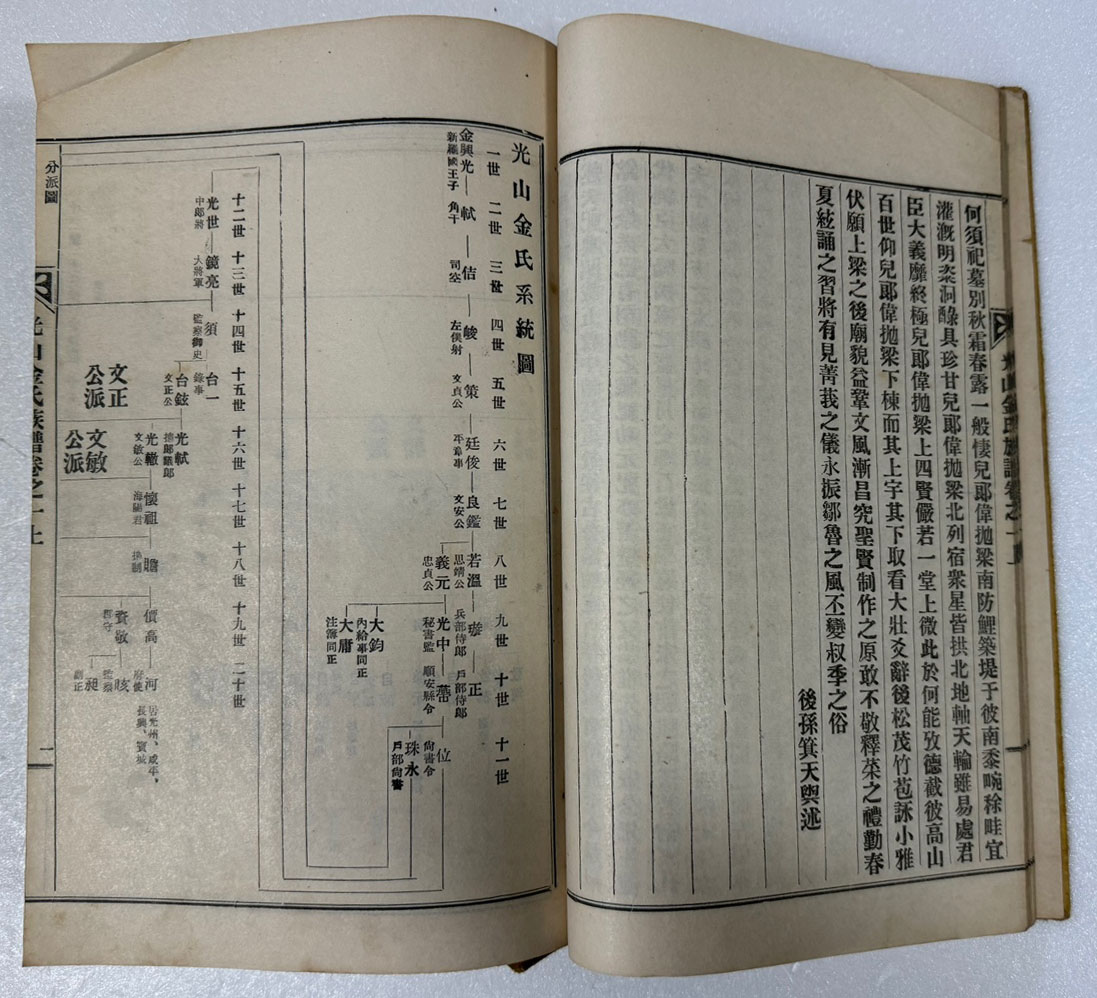 何須祀墓別秋霜春露一般悽兒郞偉抛梁南防鯉築堤于彼南黍畹稌畦宜
灌漑明粢洞醁具珍甘兒郞偉抛梁北列宿衆星皆拱北地軸天輪雖易處君
臣大義靡終極兒郞偉抛梁上四賢儼若一堂上微此於何能攷德截彼高山
百世仰兒郞偉抛梁下棟而其上宇其下取看大壯爻辭後松茂竹苞詠小雅
伏願上梁之後廟貌益鞏文風漸昌究聖賢制作之原敢不敬釋菜之禮勤春
夏絃誦之習將有見菁莪之儀永振鄒魯之風丕變叔季之俗
後孫箕天與述
光山金氏系統圖
一世 二世 三世 四世 五世 六世 七世 八世 九世 十世 十一世
金興光 軾 佶 峻 策 廷俊 良鑑 若溫 璲 正 位
新羅國王子 角干 司空 左僕射 文貞公 平章事 文安公 思靖公 兵部侍郞 戶部侍郞 尙書令
義元 光中 蔕 珠永
忠貞公 秘書監 順安縣令 戶部尙書
大鈞
內給事同正
大庸
注簿同正
十二世 十三世 十四世 十五世 十六世 十七世 十八世 十九世 二十世
光世 鏡亮 須 台一
中郞將 大將軍 監察御史 錄事
台鉉 光軾
文正公
文正公派
光轍 懷祖 贍 價高 河
文敏公 海陽君
居光州、咸平、長興、寶城
賚敬 晐
監察
昶
副正
文敏公派
分派圖
光山金氏族譜卷之一上
一